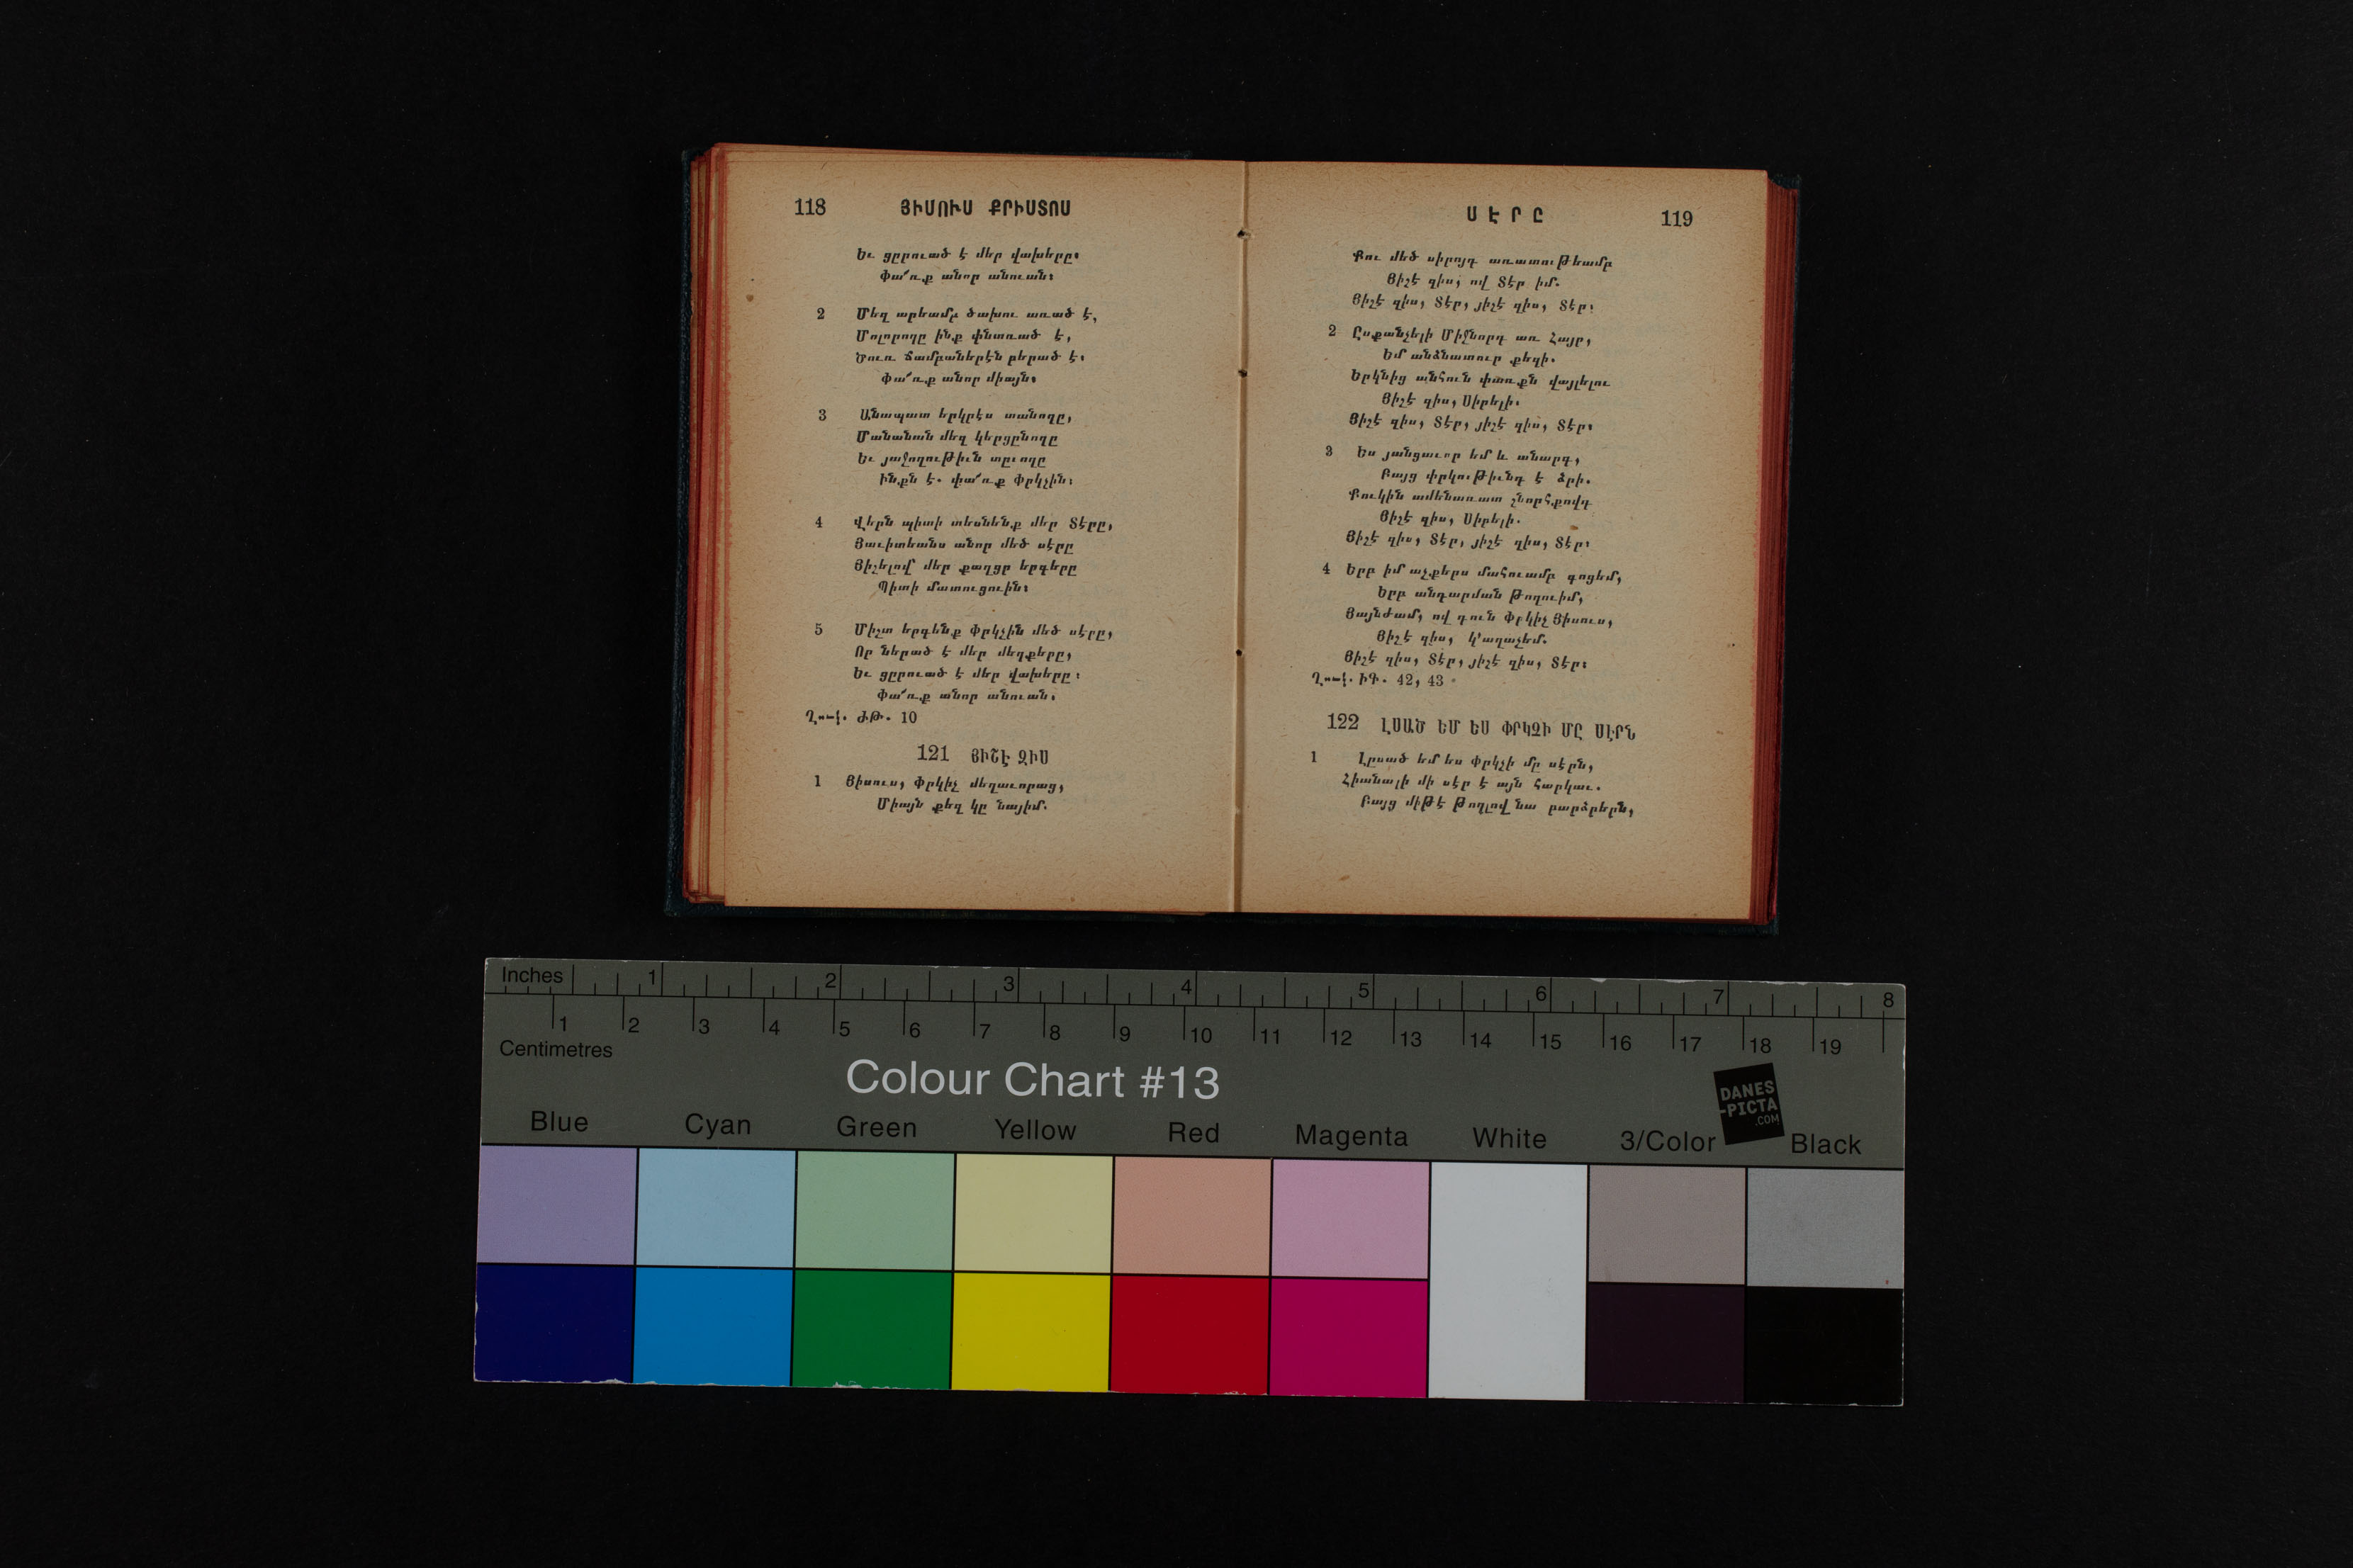 118 ՅԻՍՈՒՍ ՔՐԻՍՏՈՍ
Եւ ցըրուած է մեր վախերը։
Փա՜ռք անոր անուան։
2 Մեզ արեամբ ծախու առած է,
Մոլորողը ինք փնտռած է,
Ծուռ ճամբաներէն բերած է։
Փա՜ռք անոր միայն։
3 Անապատ երկրէս տանողը,
Մանանան մեզ կերցընողը
Եւ յաջողութիւն տըւողը
Ինքն է. փա՜ռք Փրկչին։
4 Վերն պիտի տեսնենք մեր Տէրը,
Յաւիտեանս անոր մեծ սէրը
Յիշելով մեր քաղցր երգերը
Պիտի մատուցուին։
5 Միշտ երգենք Փրկչին մեծ սէրը,
Որ ներած է մեր մեղքերը,
Եւ ցըրուած է մեր վախերը։
Փա՜ռք անոր անուան։
Ղուկ. ԺԹ. 10
121 ՅԻՇԷ ԶԻՍ
1 Յիսուս, Փրկիչ մեղաւորաց,
Միայն քեզ կը նայիմ.
ՍԷՐԸ 119
Քու մեծ սիրոյդ առատութեամբ
Յիշէ զիս, ով Տէր իմ.
Յիշէ զիս, Տէր, յիշէ զիս, Տէր։
2 Ըսքանչելի Միջնորդ առ Հայր,
Եմ անձնատուր քեզի.
Երկնից անհուն փառքն վայլելու
Յիշէ զիս, Սիրելի.
Յիշէ զիս, Տէր, յիշէ զիս, Տէր։
3 Ես յանցաւոր եմ և անարգ,
Բայց փրկութիւնդ է ձրի.
Քուկին ամենառատ շնորհքովդ
Յիշէ զիս, Սիրելի.
Յիշէ զիս, Տէր, յիշէ զիս, Տէր։
4 Երբ իմ աչքերս մահուամբ գոցեմ,
Երբ անդարման թողուիմ,
Յայնժամ, ով դուն Փրկիչ Յիսուս,
Յիշէ զիս, կ՚աղաչեմ.
Յիշէ զիս, Տէր, յիշէ զիս, Տէր։
Ղուկ. ԻԳ. 42, 43
122 ԼՍԱԾ ԵՄ ԵՍ ՓՐԿՉԻ ՄԸ ՍԷՐՆ
1 Լըսած եմ ես Փրկչի մը սէրն,
Հիանալի մի սէր է այն հարկաւ.
Բայց միթէ թողլով նա բարձրերն,
Inches 1 2 3 4 5 6 7 8
1 2 3 4 5 6 7 8 9 10 11 12 13 14 15 16 17 18 19
Centimetres
Colour Chart #13
DANES
-PICTA
.COM
Blue Cyan Green Yellow Red Magenta White 3/Color Black